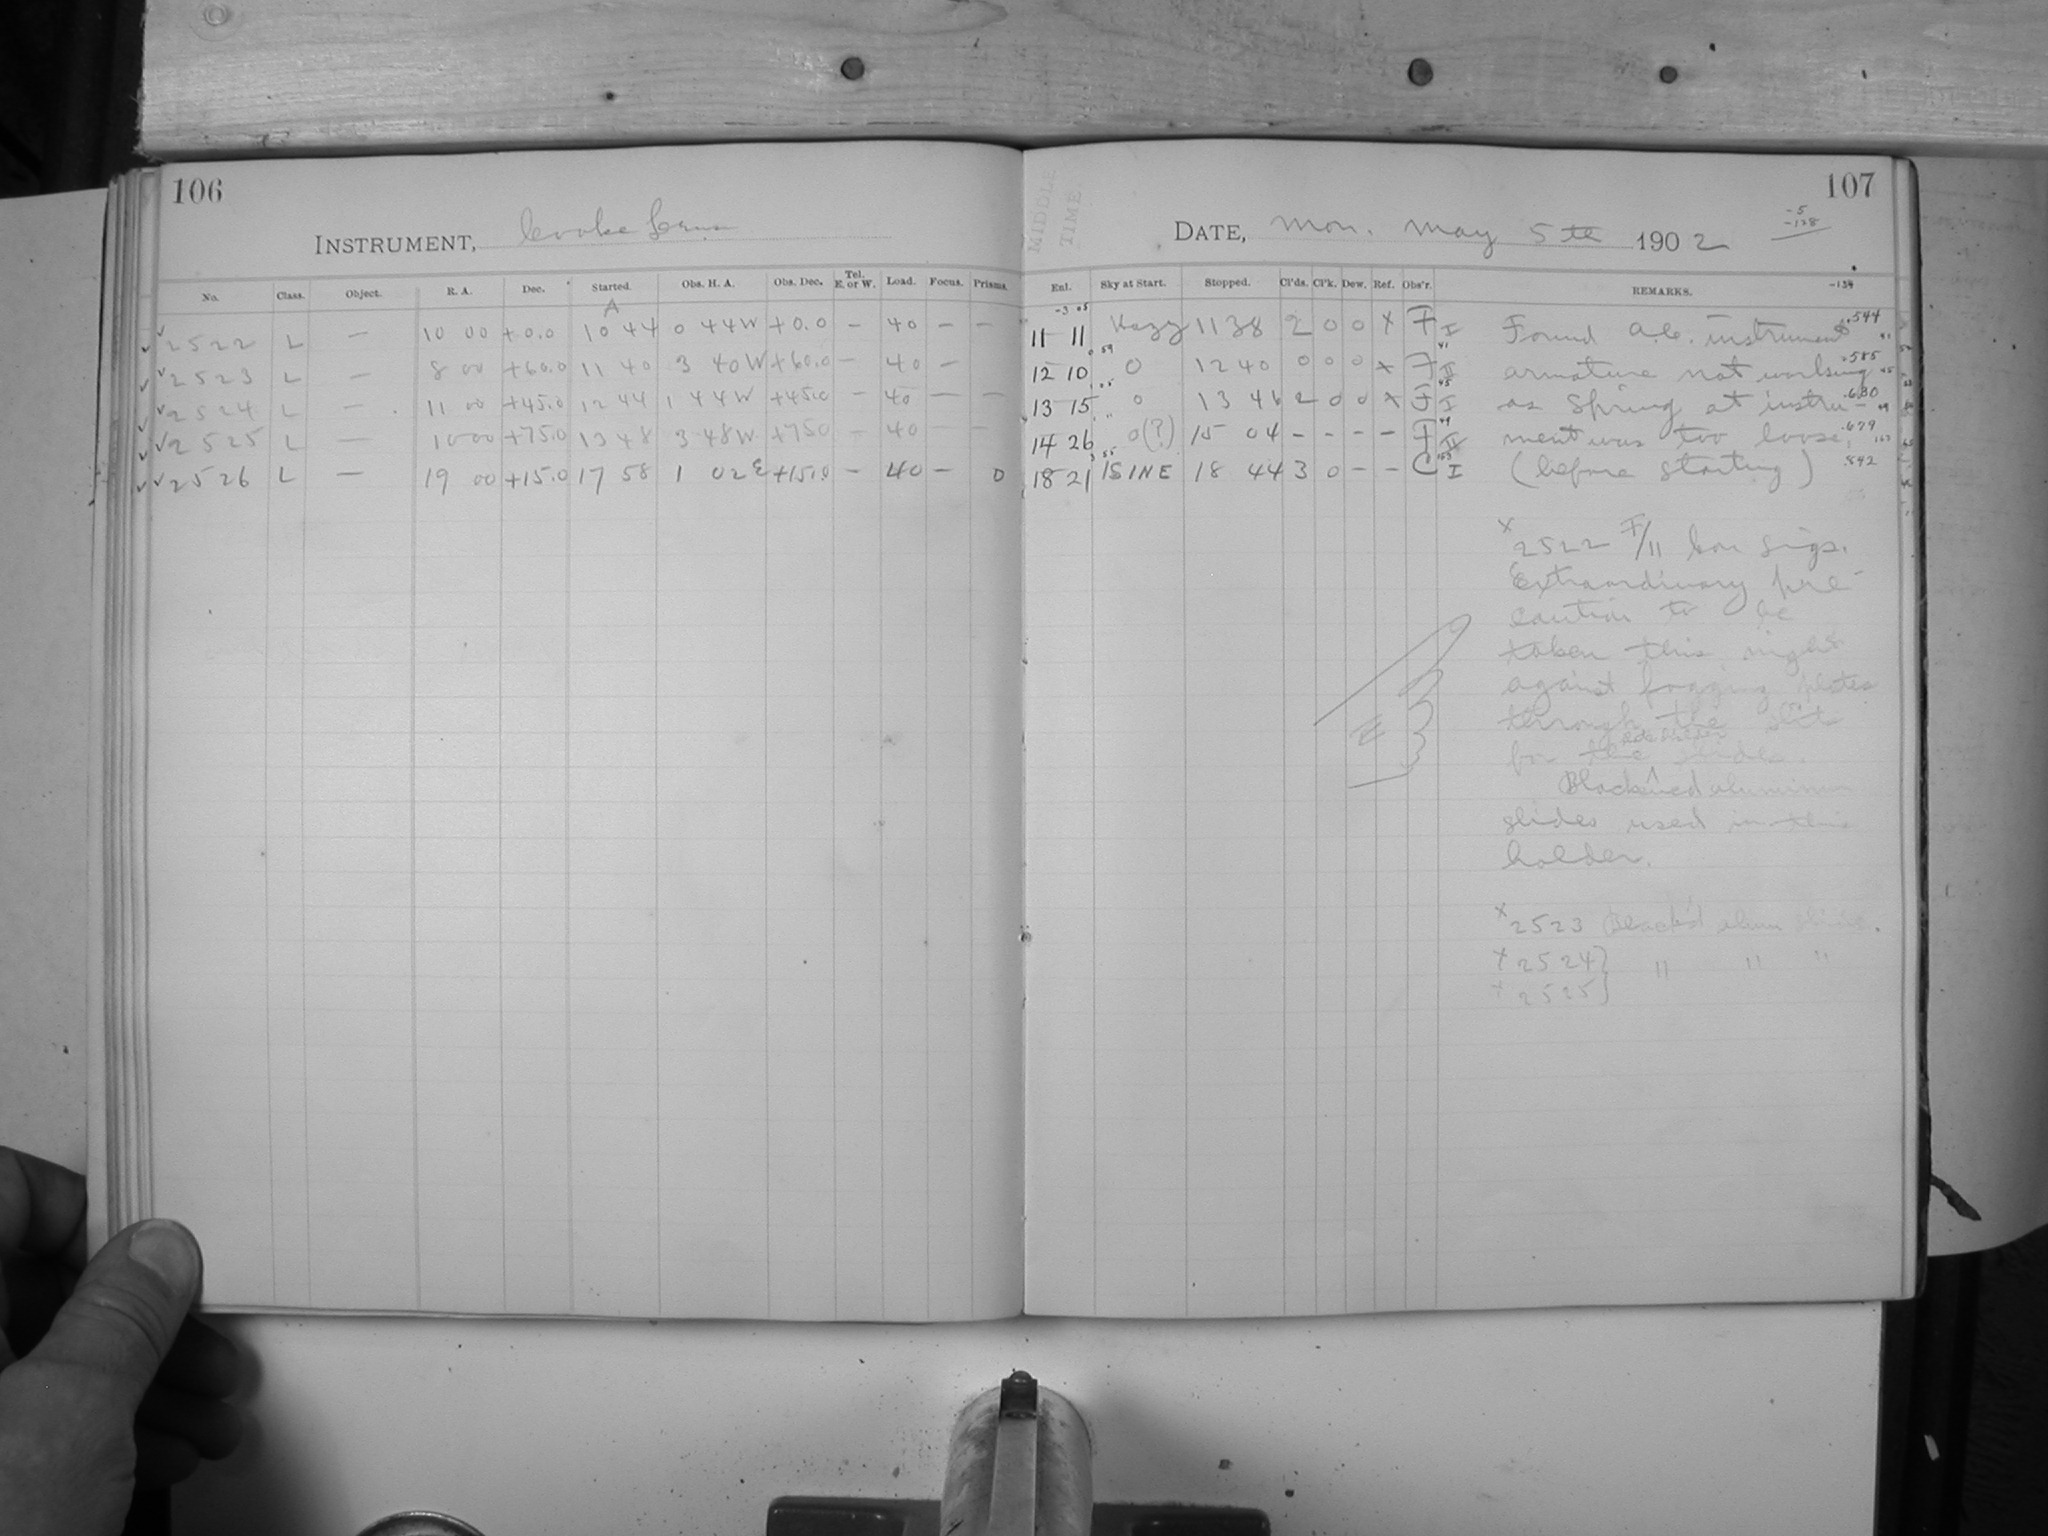 106
INSTRUMENT, Cooke Lens
No. Class. Object. R. A. Dec. Started. Obs. H. A. Obs. Dec. Tel. E. or W. Load. Focus. Prisms.
A
2522 L — 10 00 +0.0 10 44 0 44W +0.0 — 40 — —
2523 L — 8 00 +60.0 11 40 3 40W +60.0 — 40 —
2524 L — 11 00 +45.0 12 44 1 44W +45.0 — 40 — —
2525 L — 10 00 +75.0 13 48 3 48W +75.0 — 40 — —
2526 L — 19 00 +15.0 17 58 1 02E +15.0 — 40 — 0
MIDDLE
TIME
107
DATE, Mon. May 5th 1902
-5
-128
-134
Enl. Sky at Start. Stopped. Cl'ds. Cl'k. Dew. Ref. Obs'r. REMARKS.
11 11 Hazy 11 38 2 0 0 x F I Found a.c. instrument .544
12 10 0 12 40 0 0 0 x F I armature not working .585
13 15 0 13 46 2 0 0 x F I as spring at instru- .630
14 26 0(?) 15 04 - - - - F ment was too loose. .679
18 21 IS IN E 18 44 3 0 - - C I (before starting) .842
x 2522 F/11
Extraordinary pre-
caution to be
taken this night
against fogging plates
through the slits
for the slides.
Blackened aluminum
slides used in this
holder.
x 2523 Black'd alum slide.
x 2524 } " " "
x 2525 }